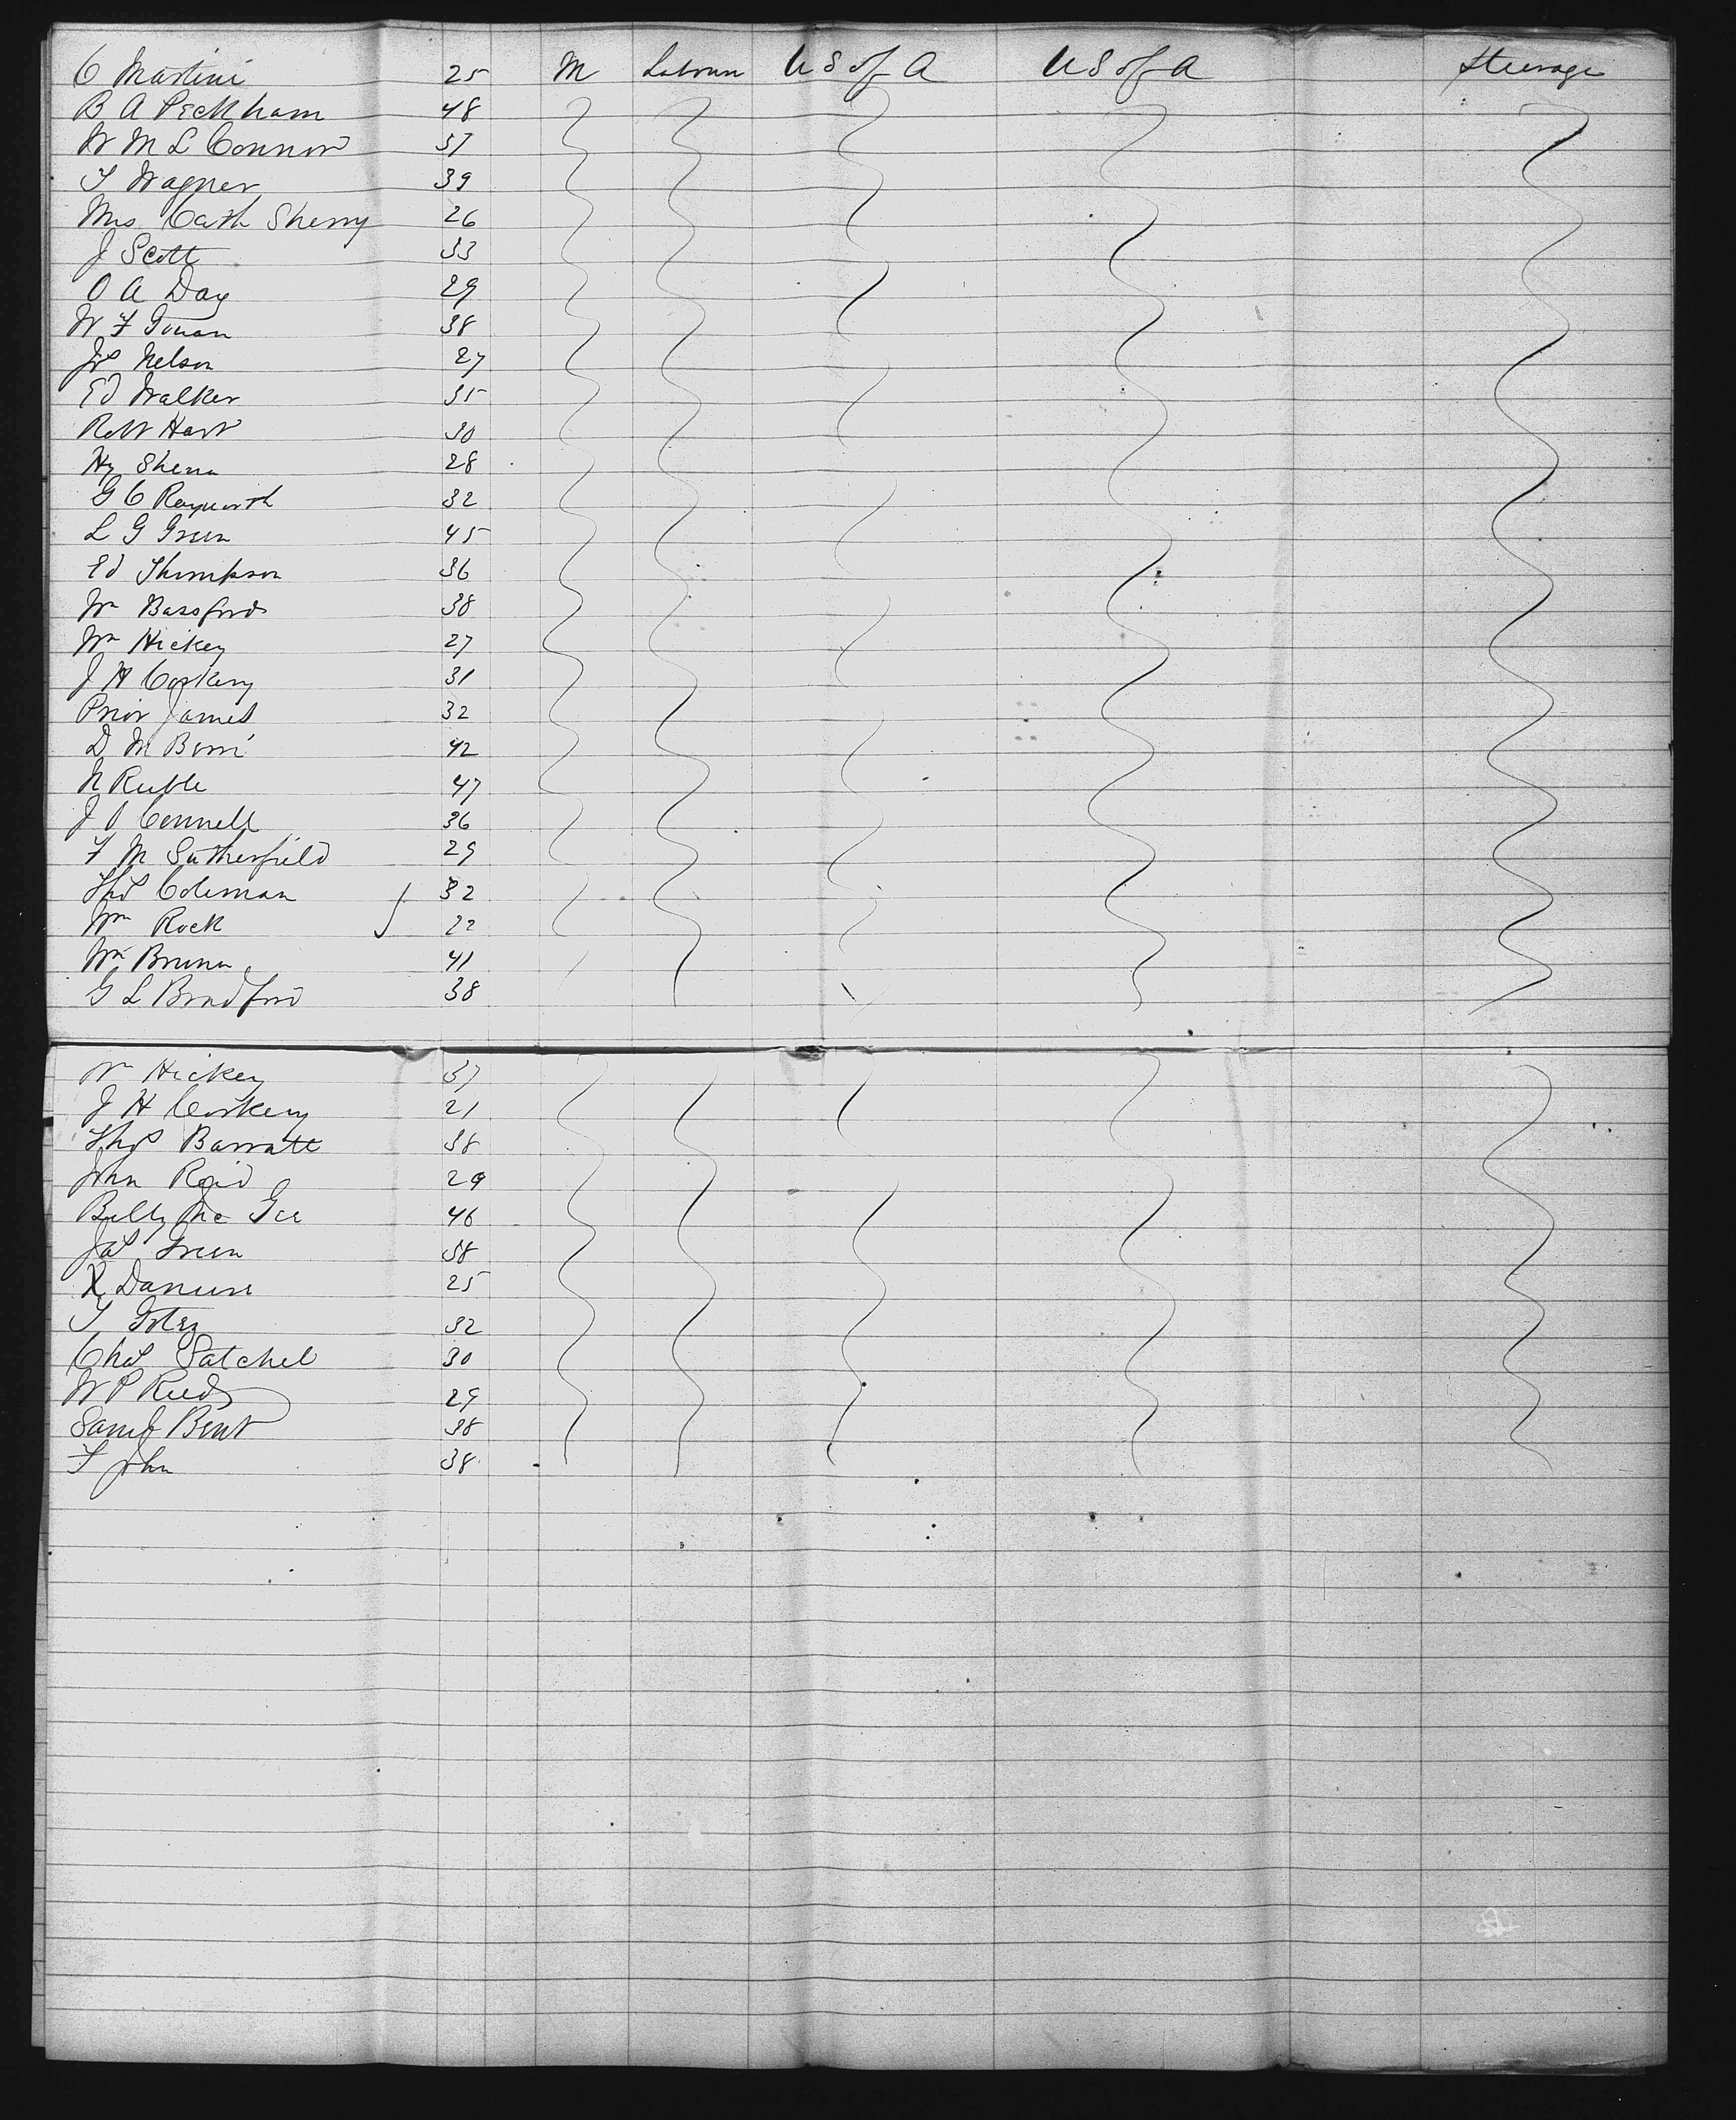 C Martini 25 M Labourer U S of A U S of A Steerage
B A Peckham 48
W M L Connor 37
T Wagner 39
Mrs Cath Sherry 26
J Scott 33
O A Day 29
W F 38
Js Nelson 27
Ed Walker 35
Robt Hart 30
Hy Shena 28
G C Rayworth 32
L G Green 45
Ed Thompson 36
Wm Bassford 38
Wm Hickey 27
J H Coskery 31
Prior James 32
D M 42
N Ruble 47
J O Connell 36
F M Sutherfield 29
Thos Coleman 32
Wm Rock 22
Wm Brunn 41
G L Bradford 38
Wm Hickey 37
J H Coskery 21
Thos Barratt 38
John Reid 29
Billy Mc Gee 46
Jas Green 38
25
T 32
Chas Satchel 30
W P Reed 29
Saml Bent 38
F John 38